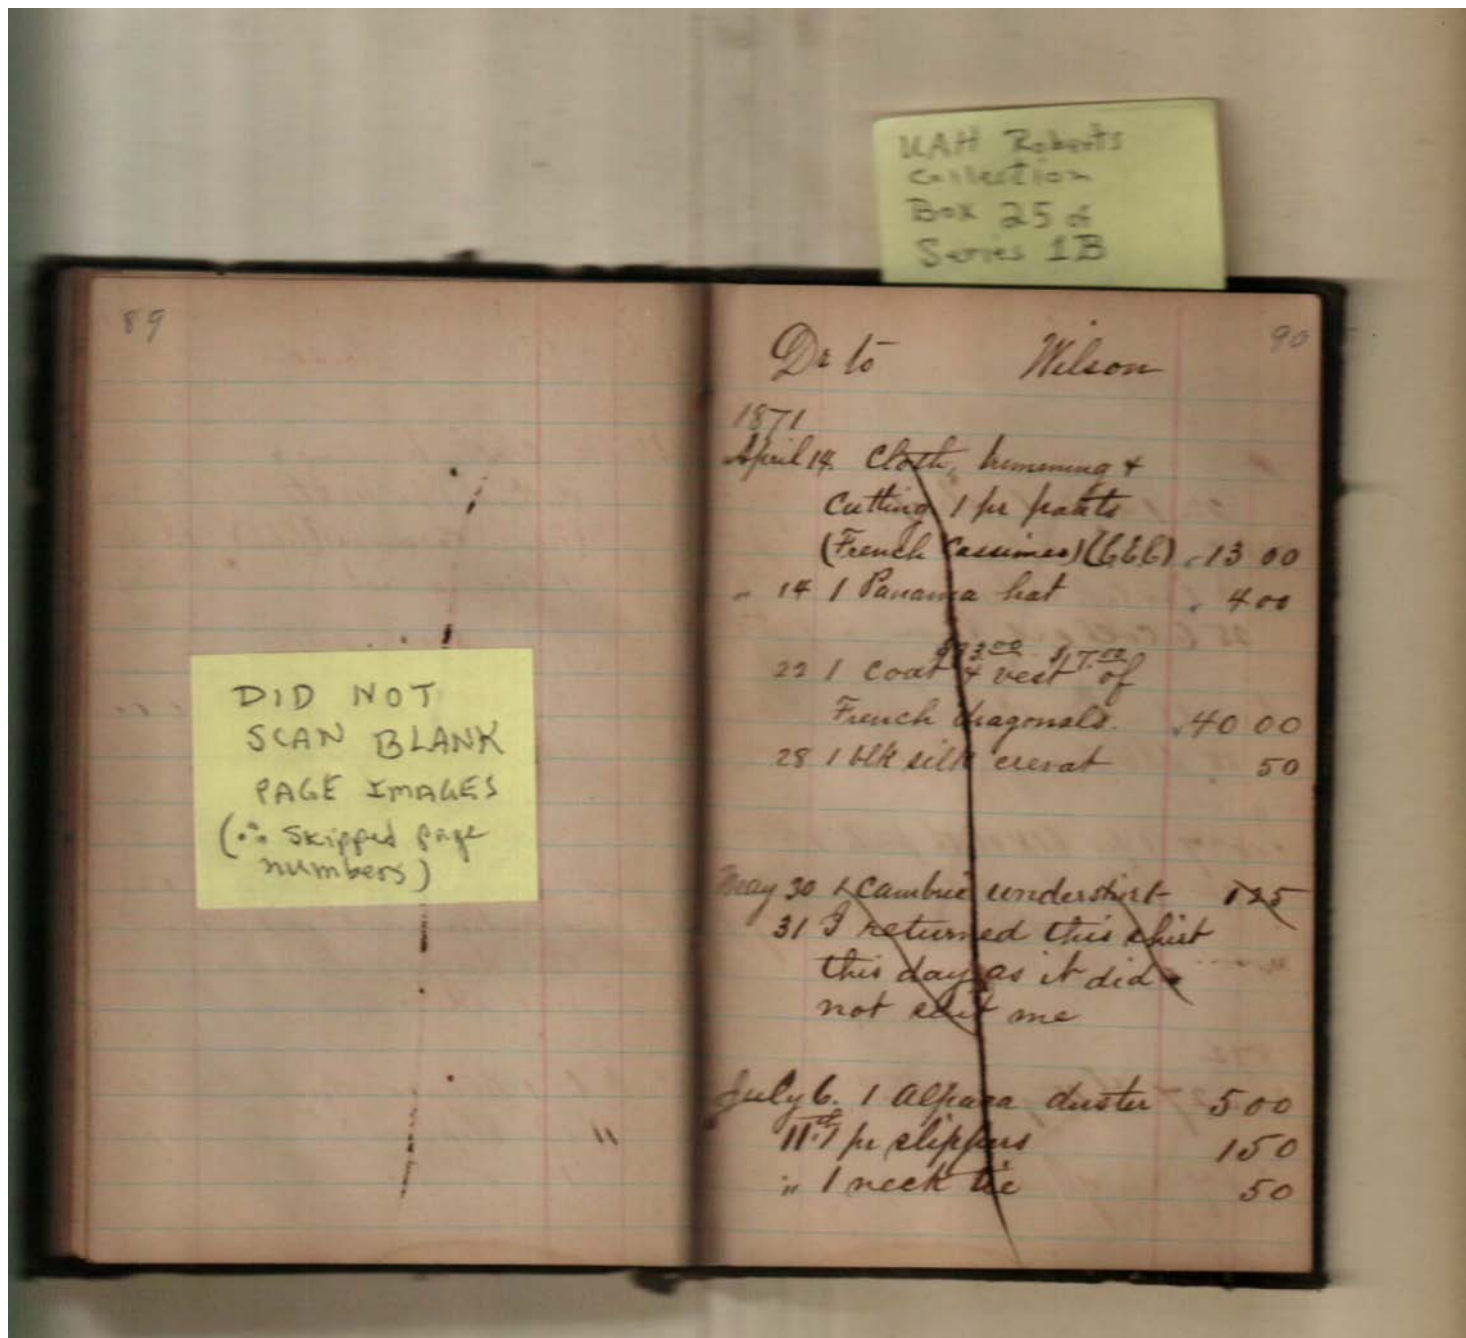 UAH Roberts
Collection
Box 25 of
Series 1B
89
DID NOT
SCAN BLANK
PAGE IMAGES
(∴ Skipped page
numbers)
"
90
Dr to Wilson
1871
April 14. Cloth, trimming &
cutting 1 pr pants
(French Cassimes) 13 00
" 14 1 Panama hat 4 00
$23.00 $17.00
22 1 coat & vest of
French diagonals. 40 00
28 1 blk silk cravat 50
May 30 1 Cambric undershirt 1 25
31 I returned this shirt
this day as it did
not suit me
July 6. 1 Alpaca duster 5 00
11th 1 pr slippers 1 50
" 1 neck tie 50